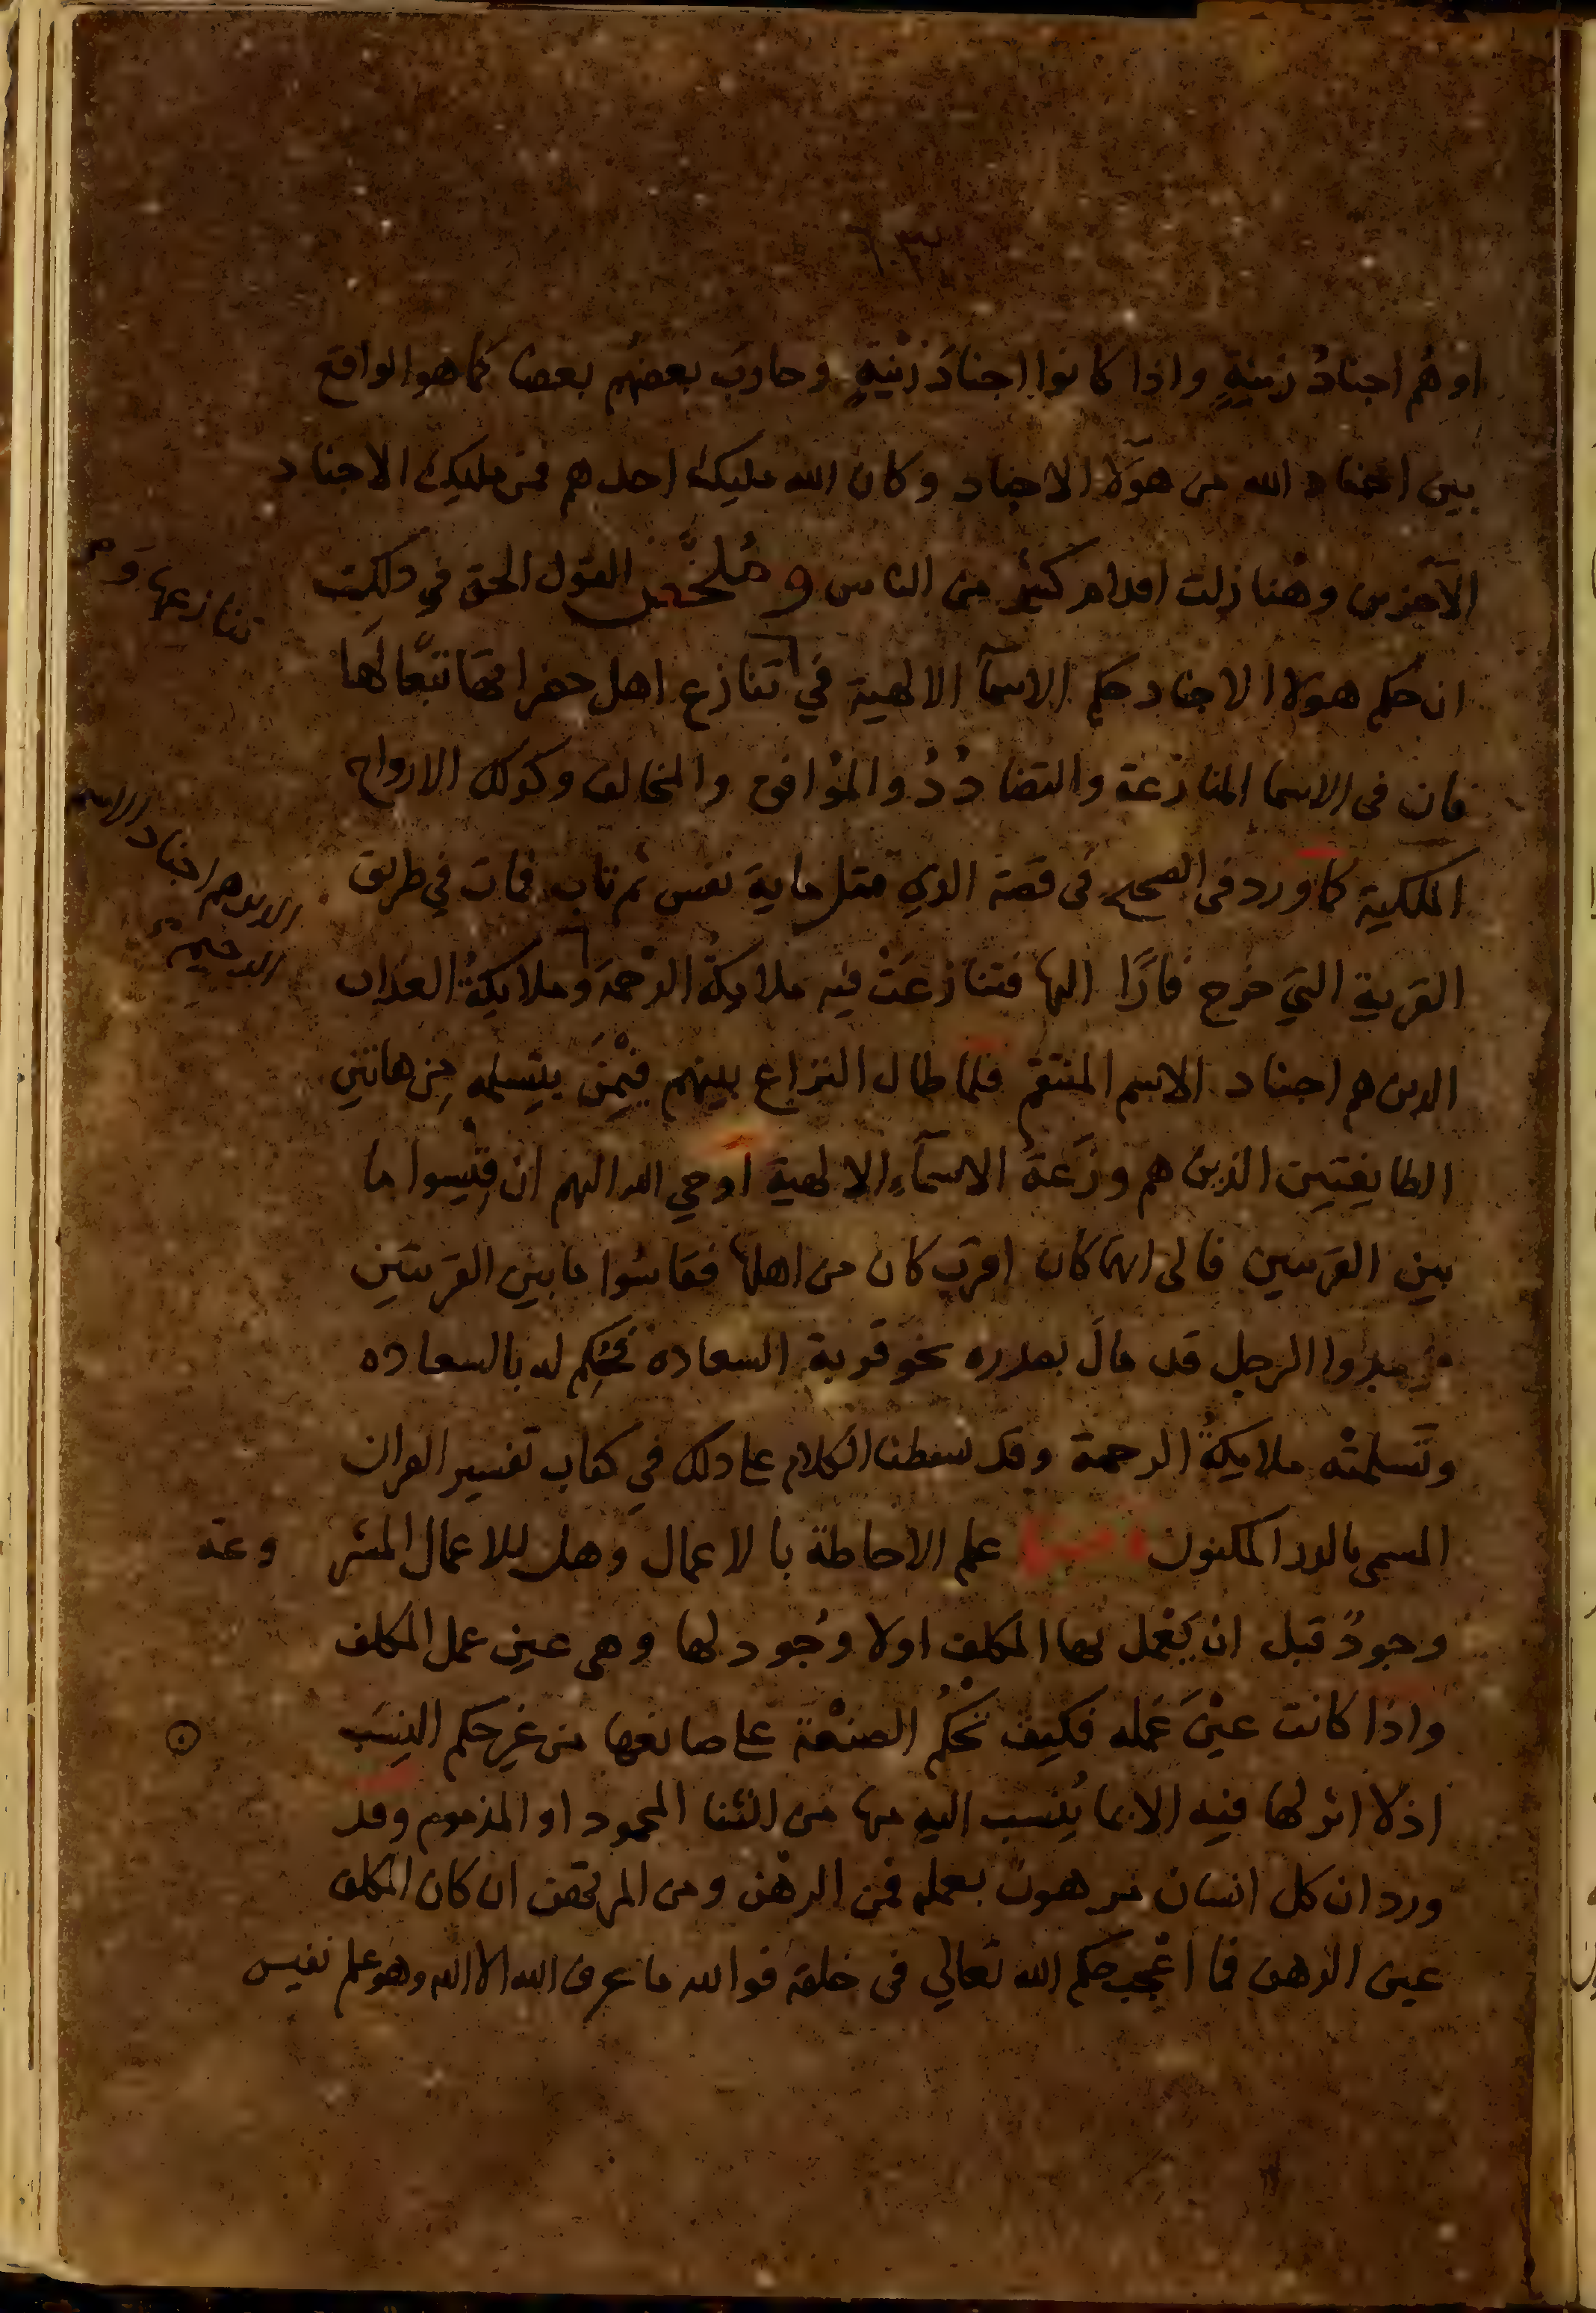 او هُم اجنادُ زينيةٍ واذا كانوا اجنادَ زينيةٍ وحارب بعضهُم بعضا كما هو الواقع
بين اجناد الله من هؤلا الاجناد وكان الله مليك احدهم فمن مليك الاجناد
الآخرين وهُنا زلت اقدام كثير من الناس وملخّص القول الحق في ذلك
ان حكم هولا الاجناد حكم الاسمآ الالهية في تنازع اهل حضراتها تبعًا لها
تنازعها و
فان في الاسما المنازعة والتضادُدُ والموافق والمخالف وكذلك الارواح
الملكية كما ورد في الصحيح في قصة الذي قتل ماية نفس ثم تاب فمات في طريق
القرية التي خرج فارًا اليها فتنازعَتْ فيه ملايكةُ الرحمة وملايكةُ العذاب
الذين هم اجناد الاسم
الرحيم
الذين هم اجناد الاسم المنتقم فلما طال النزاع بينهم فيْمَن يتسلمه مِن هاتين
الطايفتين الذين هم وزَعَة الاسمآءِ الالهية اوحي الله اليهم ان قِيسوا ما
بين القريتين فالى ايتهما كان اقرب كان من اهلها فقاسُوا ما بين القريتين
فوجدوا الرجل قد مالَ بصدره نحو قرية السعاده فحُكِم له بالسعاده
وتَسلمتْه ملايكةُ الرحمة وقد بسطنا الكلام على ذلك في كتاب تفسير القران
المسمى بالدر المكنون علم الاحاطة بالاعمال وهل للاعمال المشر وعة
وجودٌ قبل ان يَعْمل بها المكلف اولا وجُود لها وهي عين عمل المكلف
واذا كانت عيْنَ عَمله فكيف تحْكُمُ الصنعْة على صانعها من غير حكم النِسَب
اذ لا اثر لها فيه الا بما يُنسب اليه منها من الثنا المحمود او المذموم وقد
ورد ان كل انسان مرهون بعمله فمن الرهن ومن المرتهن ان كان المكلف
عين الرهن فما اعْجب حكم الله تعالي في خلقه فوالله ما عرف الله الا الله وهو علم نفيس